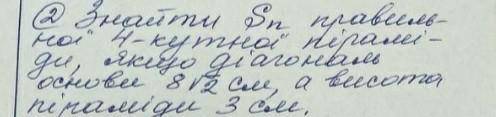 ② Знайти Sп правиль-
ної 4-кутної пірамі-
ди, якщо діагональ
основи 8√2 см, а висота
піраміди 3 см.